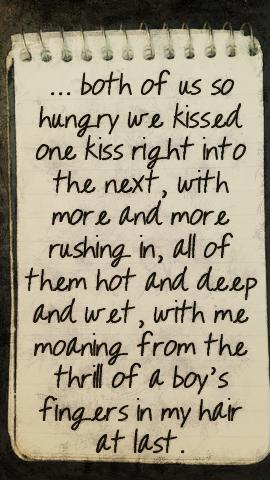 ... both of us so
hungry we kissed
one kiss right into
the next, with
more and more
rushing in, all of
them hot and deep
and wet, with me
moaning from the
thrill of a boy's
fingers in my hair
at last.